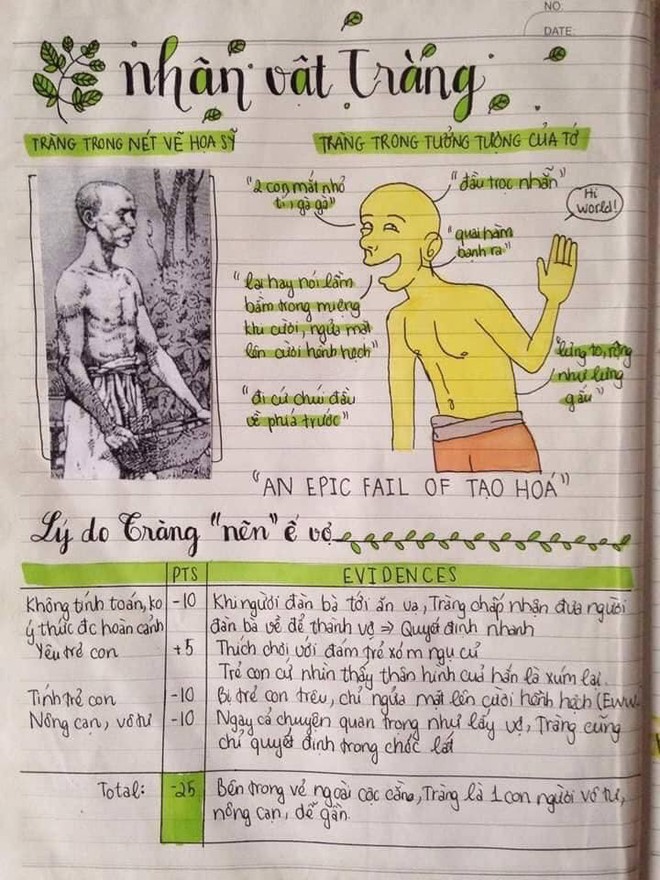 NO.
DATE:
nhân vật Tràng
TRÀNG TRONG NÉT VẼ HỌA SỸ
TRÀNG TRONG TƯỞNG TƯỢNG CỦA TỚ
"2 con mắt nhỏ
tí, gà gà"
"đầu trọc nhẵn"
Hi
world!
"quai hàm
bạnh ra"
"lại hay nói lảm
bảm trong miệng
khi cười, ngửa mặt
lên cười hềnh hệch"
"lưng to, rộng
như lưng
gấu"
"đi cứ chúi đầu
về phía trước"
"AN EPIC FAIL OF TẠO HOÁ"
Lý do Tràng "nên" ế vợ
PTS EVIDENCES
Không tính toán, ko -10 Khi người đàn bà tới ăn vạ, Tràng chấp nhận đưa người
ý thức đc hoàn cảnh đàn bà về để thành vợ => Quyết định nhanh
Yêu trẻ con +5 Thích chơi với đám trẻ xóm ngụ cư
Trẻ con cứ nhìn thấy thân hình của hắn là xúm lại.
Tính trẻ con -10 Bị trẻ con trêu, chỉ ngửa mặt lên cười hềnh hệch (Eww
Nông cạn, vô tư -10 Ngay cả chuyện quan trọng như lấy vợ, Tràng cũng
chỉ quyết định trong chốc lát
Total: -25 Bên trong vẻ ngoài cộc cằn, Tràng là 1 con người vô tư,
nông cạn, dễ gần.